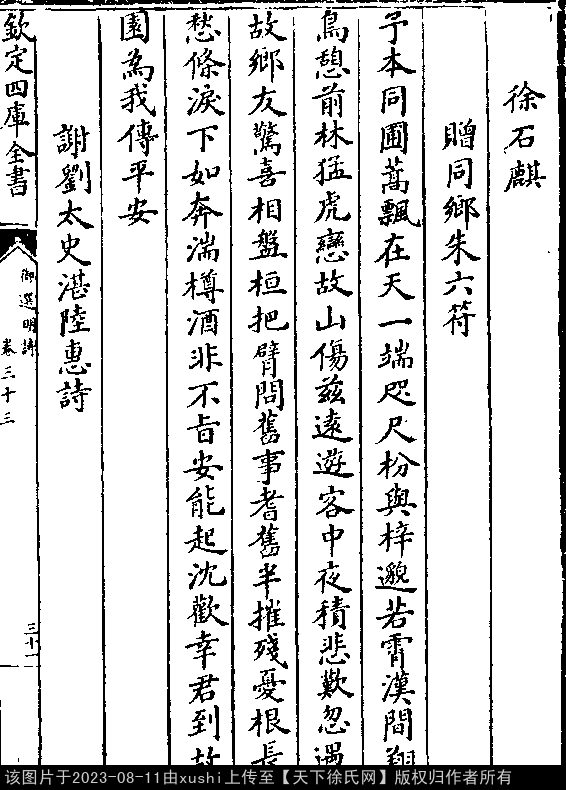 徐石麒
贈同鄉朱六符
予本同圃蒿飄在天一端咫尺枌與梓邈若霄漢間翔
鳥憩前林猛虎戀故山傷茲遠遊客中夜積悲歎忽遇
故鄉友驚喜相盤桓把臂問舊事耆舊半摧殘憂根長
愁條淚下如奔湍樽酒非不旨安能起沈歡幸君到故
園為我傳平安
謝劉太史湛陸惠詩
欽定四庫全書
御選明詩
卷三十三
三十一
该图片于2023-08-11由xushi上传至【天下徐氏网】版权归作者所有